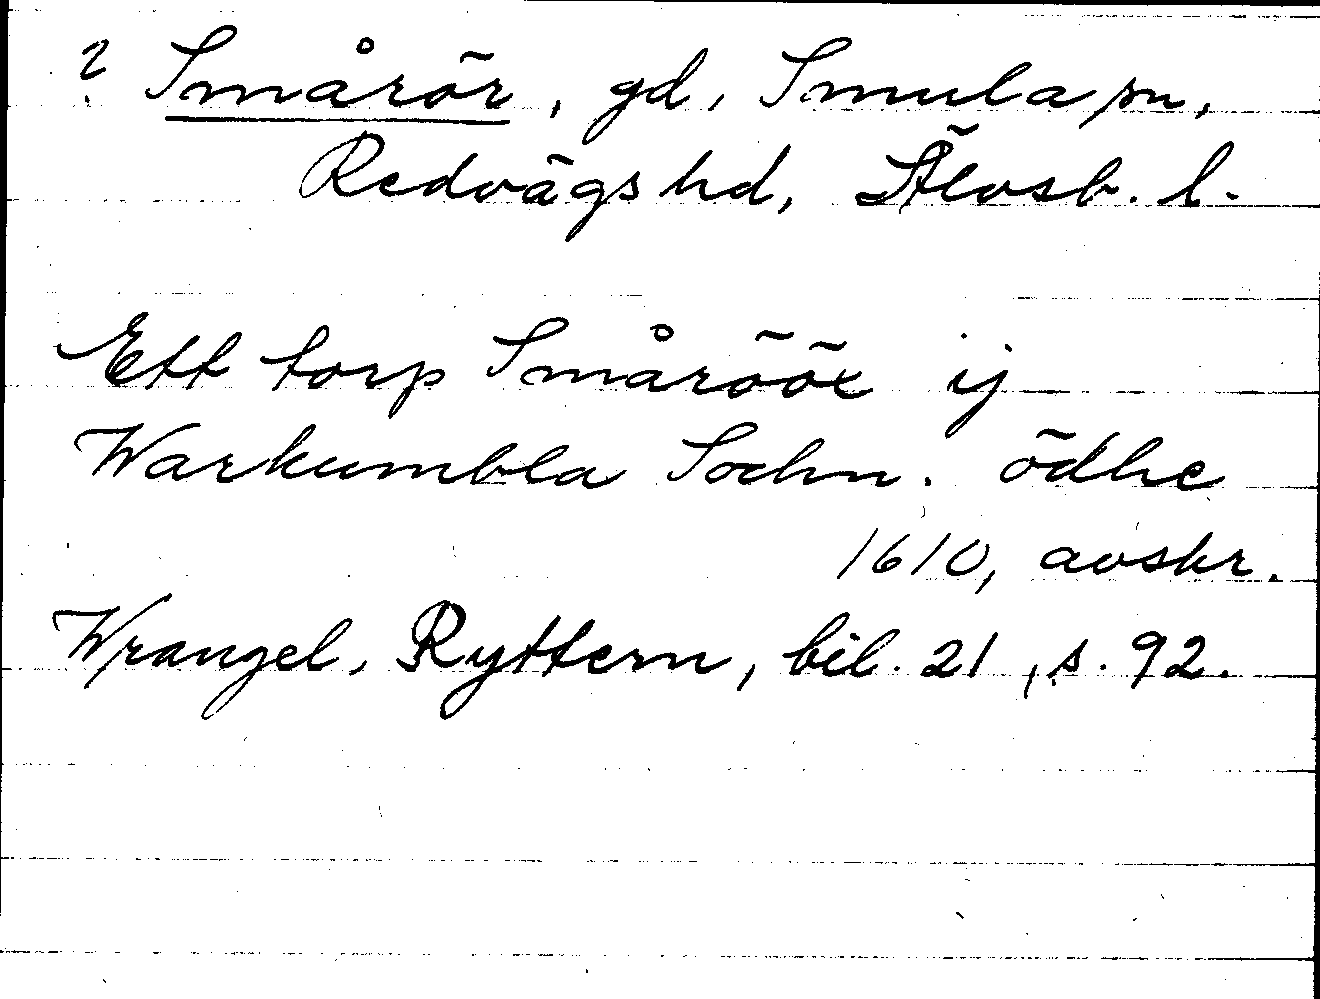 ? Smårör, gd, Smula sn,
Redvägs hd, Älvsb. l.
Ett torp Småröör ij
Warkumbla Sochn. ödhe
1610, avskr.
Wrangel, Ryttern, bil. 21, s. 92.